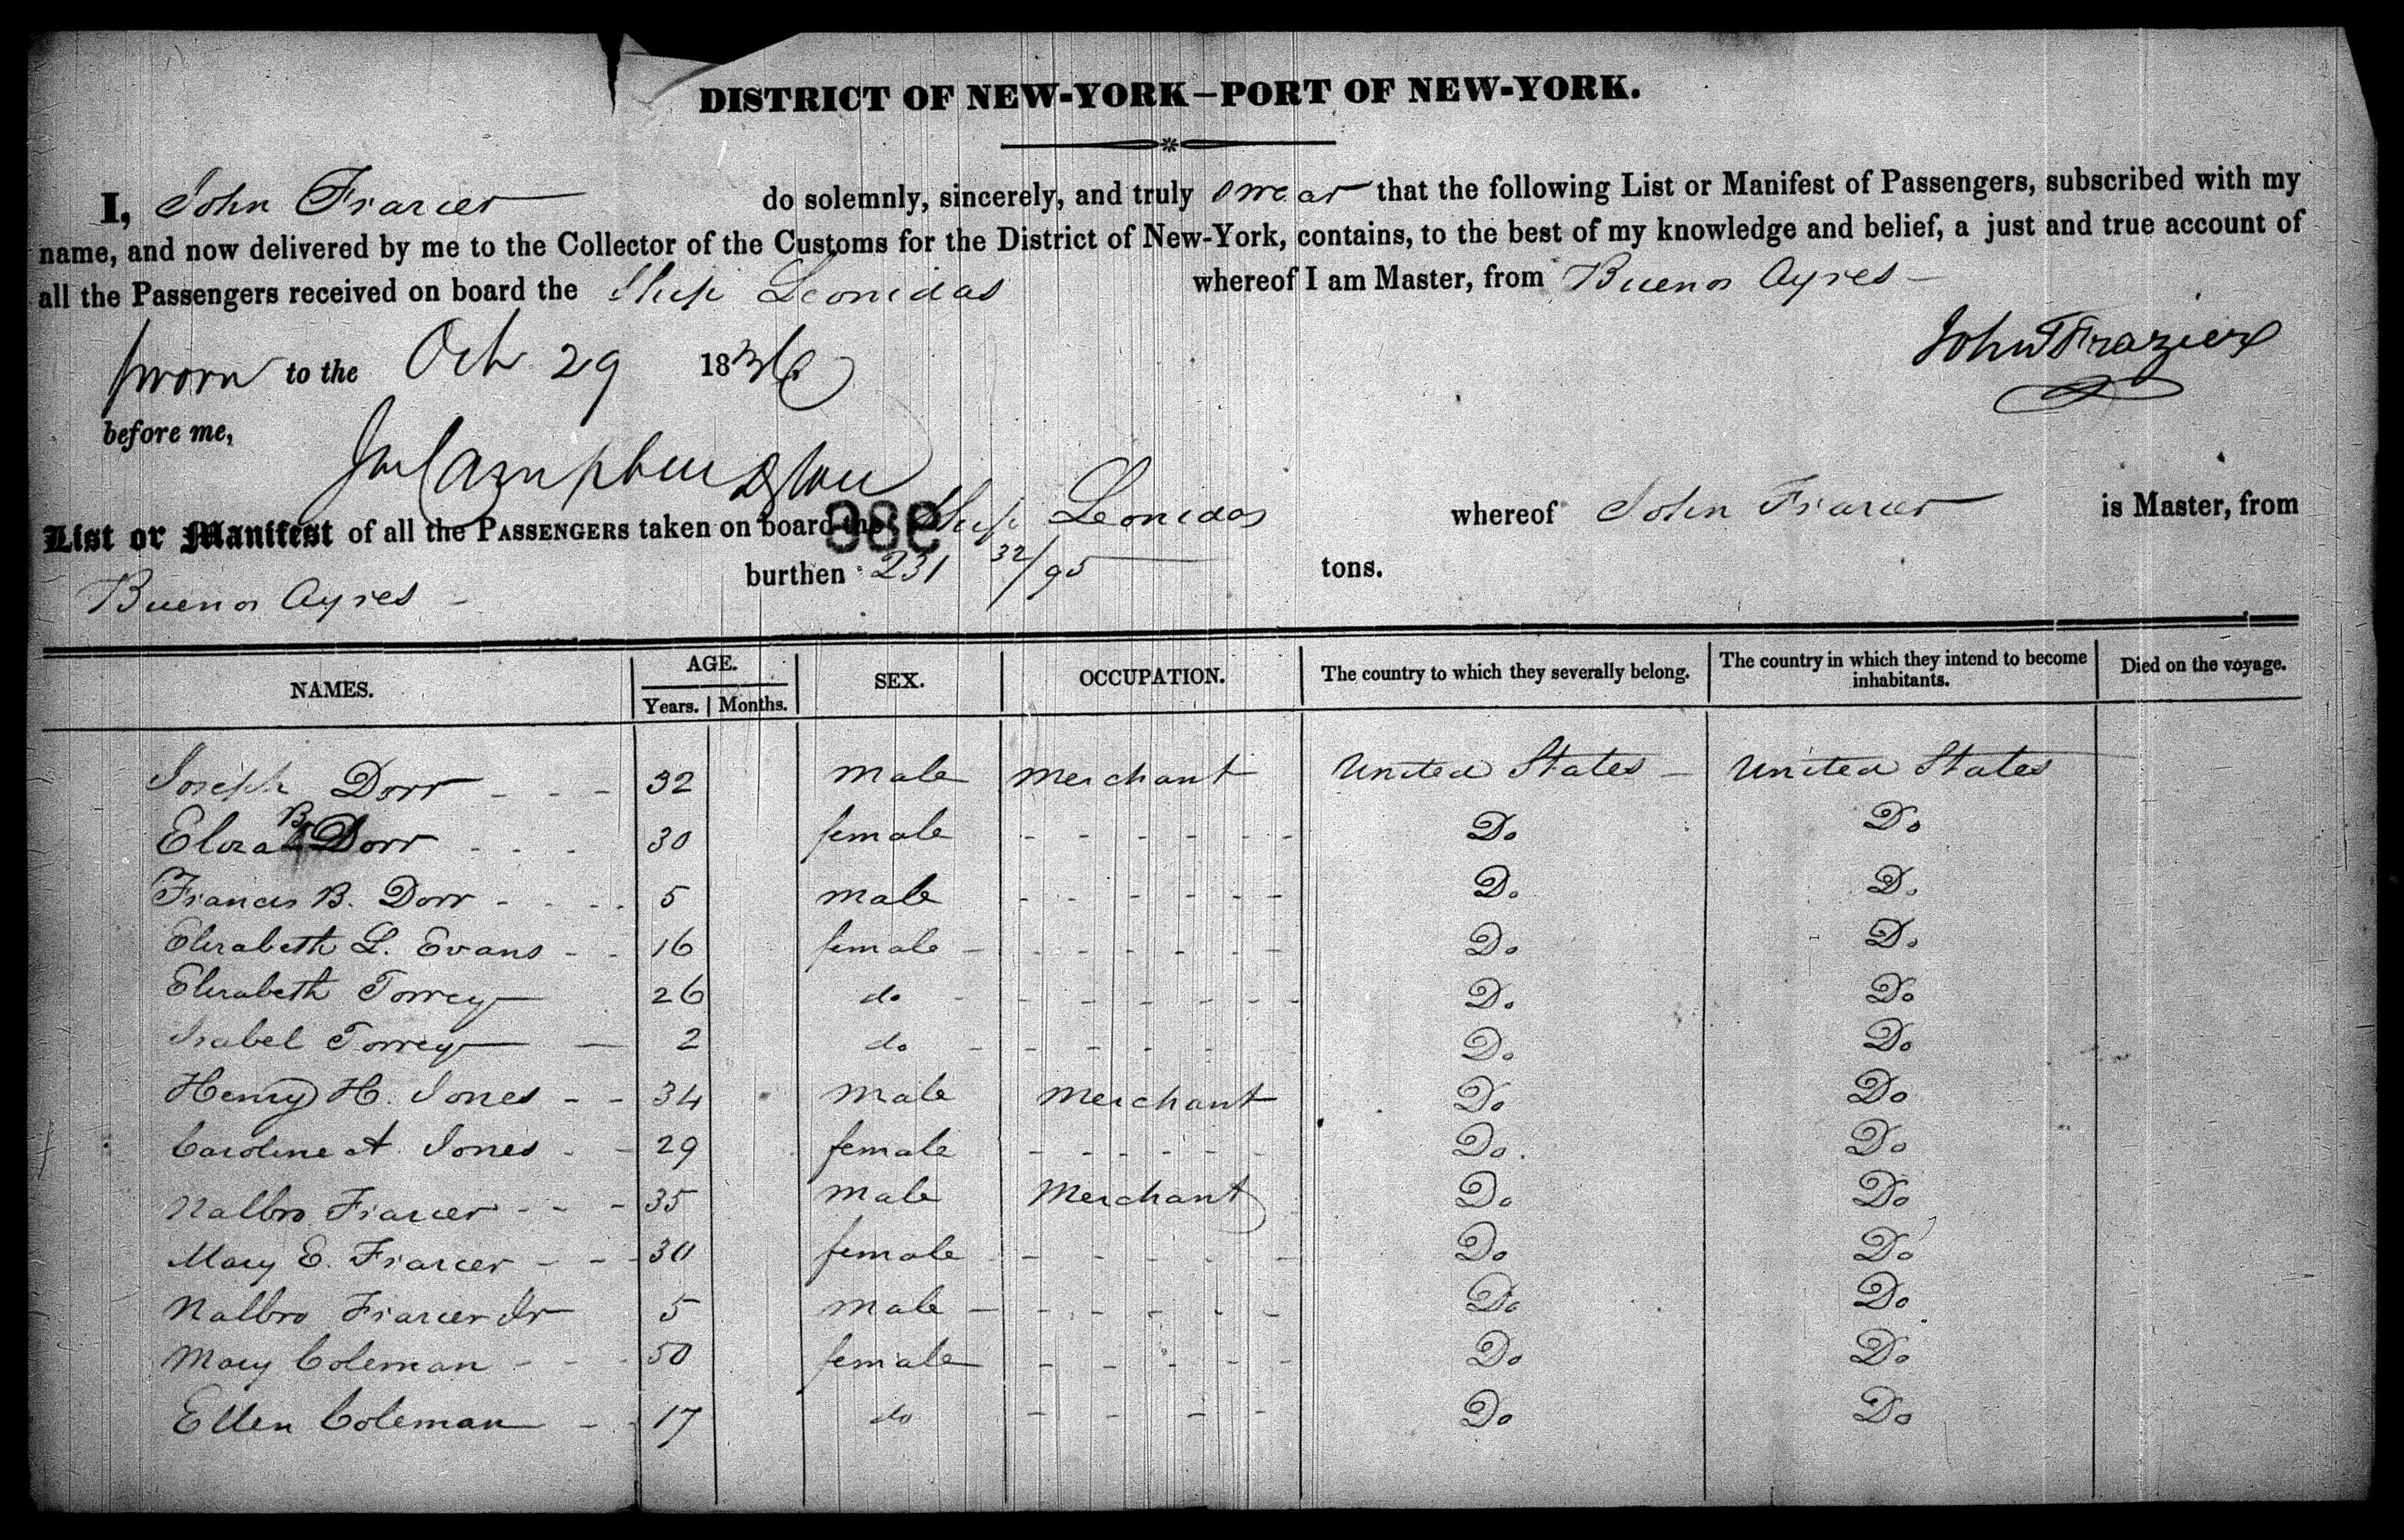 DISTRICT OF NEW-YORK–PORT OF NEW-YORK.
I, John Frazier do solemnly, sincerely, and truly swear that the following List or Manifest of Passengers, subscribed with my
name, and now delivered by me to the Collector of the Customs for the District of New-York, contains, to the best of my knowledge and belief, a just and true account of
all the Passengers received on board the Ship Leonidas whereof I am Master, from Buenos Ayres
Sworn to the Oct 29 1836
John Frazier
before me,
List or Manifest of all the PASSENGERS taken on board the Ship Leonidas whereof John Frazier is Master, from
Buenos Ayres burthen 231 32/95 tons.
NAMES. AGE. SEX. OCCUPATION. The country to which they severally belong. The country in which they intend to become inhabitants. Died on the voyage.
Years. Months.
Joseph Dorr - - - 32 male merchant United States - United States
Eliza B Dorr - - - 30 female - - - - - - Do Do
Francis B. Dorr - - - - 5 male - - - - - - Do Do
Elizabeth L. Evans - - 16 female - - - - - - - Do Do
Elizabeth Torrey 26 do - - - - - - - Do Do
Isabel Torrey 2 do - - - - - - Do Do
Henry H. Jones - - 34 male merchant Do Do
Caroline A Jones - - 29 female - - - - - - Do Do
Nalbro Frazier - - - 35 male Merchant Do Do
Mary E. Frazier - - - 30 female - - - - - Do Do
Nalbro Frazier Jr 5 male - - - - - - - Do Do
Mary Coleman - - - 50 female - - - - - Do Do
Ellen Coleman - - 17 do - - - - Do Do